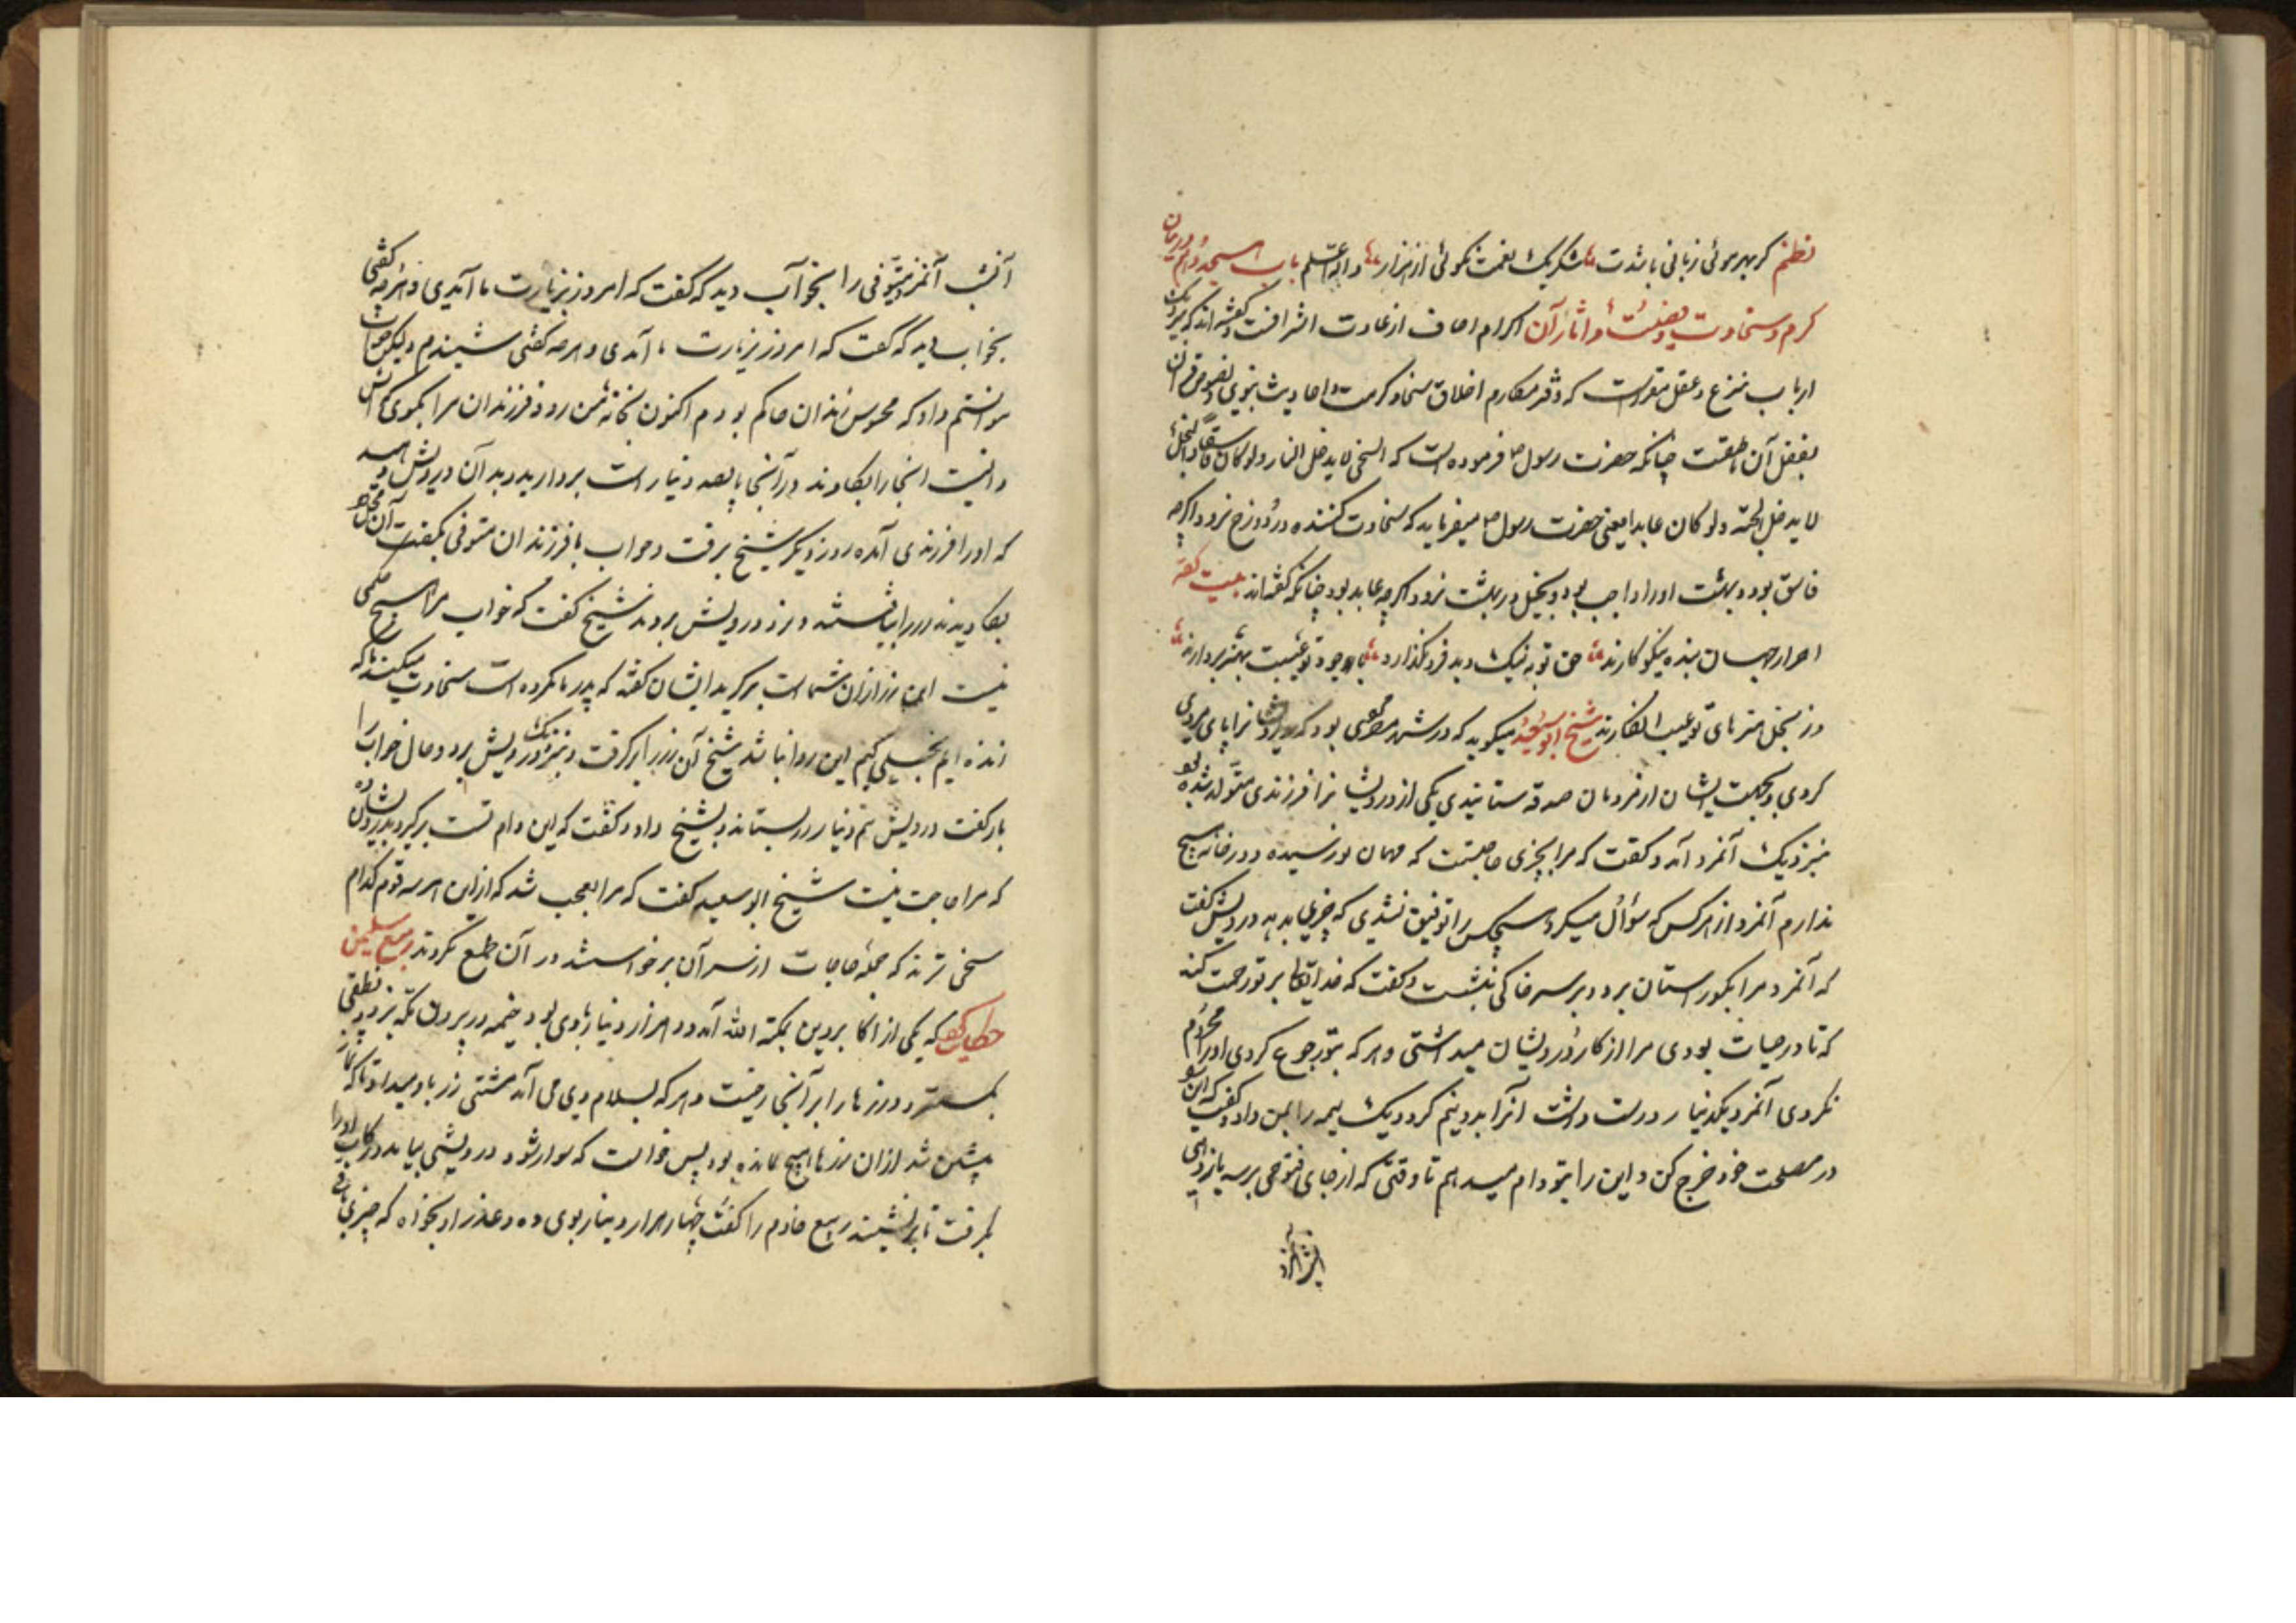 نظم گر بهر موئی زبانی باشدت شکر یک نعمت نگوئی از هزار والله اعلم باب هیجدهم در بیان
کرم و سخاوت و فضیلت و آثار آن اکرام اصاف از عادت اشرافست و گفته اند که نزدیک
ارباب شرع و عقل مقررست که دفتر مکارم اخلاق سخا و کرمست و احادیث نبوی و نصوص قرآن
بفضل آن ناطقست چنانکه حضرت رسول ص فرموده است که السخی لا یدخل النار ولو کان فاسقا والبخیل
لا یدخل الجنة ولو کان عابدا یعنی حضرت رسول ص میفرماید که سخاوت کننده در دوزخ نرود اگرچه
فاسق بود و بهشت او را واجب بود و بخیل در بهشت نرود اگرچه عابد بود چنانکه گفته اند بیت
احرار جهان بنده نیکو کارند حق تو به نیک و بد فرو نگذارند با جود تو عیبت بهنر بردارند
وز بخل هنرهای تو عیب انگارند شیخ ابو سعید میگوید که در شهر مصر مردی بود که درویشان را پای مردی
کردی و بجهت ایشان از مردمان صدقه ستانیدی یکی از درویشان را فرزندی متولد شده بود
بنزدیک آنمرد آمد و گفت که مرا بچیزی حاجتست که مهمان نو رسیده و در خانه هیچ
ندارم آنمرد از هر کس که سؤال میکرد هیچکس را توفیق نشدی که چیزی بدهد درویش گفت
که آنمرد مرا بگورستان برد و بر سر خاکی بنشست و گفت که خدایتعالی بر تو رحمت کند
که تا در حیات بودی مرا از کار درویشان میداشتی و هر که بتو رجوع کردی او را محروم
نکردی آنمرد یکدینار درست داشت آنرا بدو نیم کرد و یک نیمه را بمن داد و گفت که این
در مصلحت خود خرج کن و این را بتو وام میدهم تا وقتی که از جای فتوحی برسد باز دهی
آنشب آنمرد
آنشب آنمرد متوفی را بخواب دید که گفت که امروز بزیارت ما آمدی و هرچه گفتی
بخواب دید که گفت که امروز بزیارت ما آمدی و هرچه گفتی شنیدم ولیکن جواب
نتوانستم داد که محبوس زندان حاکم بودم اکنون بخانه من رو و فرزندان مرا بگوی که
دانیست آنجا را بکاوند در آنجا پانصد دینار است بردارید و بدان درویش دهید
که او را فرزندی آمده روز دیگر شیخ برفت و جواب با فرزندان متوفی بگفت آن محل
بکاویدند زر را بیافتند و نزد درویش بردند شیخ گفت که خواب مرا هیچ حکمی
نیست این زر از آن شماست برگیرید ایشان گفتند که پدر ما مرده است سخاوت میکند ما که
زنده ایم بخیلی کنیم این روا نباشد شیخ آن زر برگرفت و بنزدیک درویش برد و حال خواب را
باز گفت درویش نیم دینار زر بستاند و بشیخ داد و گفت که این وام تست برگیر و بدرویشان ده
که مرا حاجت نیست شیخ ابو سعید گفت که مرا عجب شد که از این هر سه قوم کدام
سخی ترند که جمله حاجات از سر آن برخواستند در آن طمع نکردند ربیع سلیمن
حکایت کند که یکی از اکابر دین بمکه الله آمد ده هزار دینار با وی بود خیمه در بیرون مکه بزد و نطعی
بگسترد و زرها را بر آنجا ریخت و هر که بسلام وی می آمد مشتی زر باو میداد تا که نماز
پیشین شد از آن زرها هیچ نمانده بود پس خواست که سوار شود درویشی بیامد و رکاب او را
بگرفت تا برنشیند ربیع خادم را گفت چهار هزار دینار بوی ده و عذر او بخواه که چیزی باقی